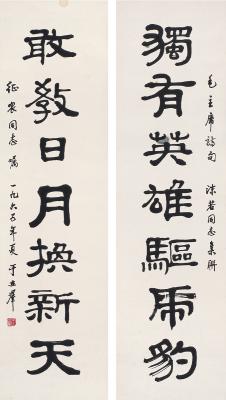 獨有英雄驅虎豹
毛主席詩句 沫若同志集聯
敢教日月換新天
征農同志 囑
一九六五年夏 于立群